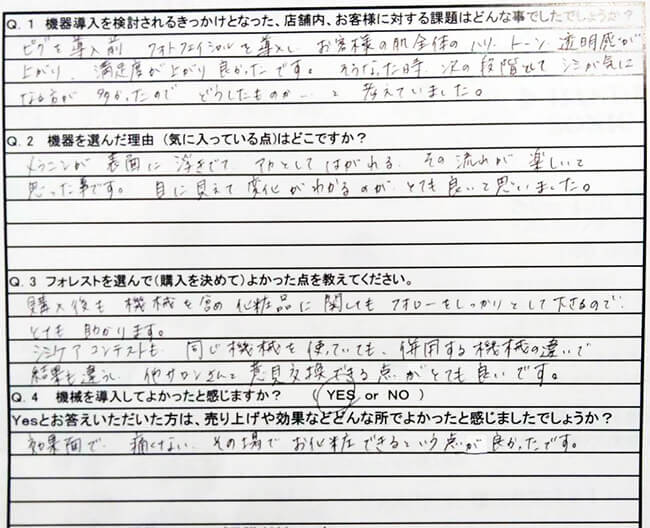 Q. 1 機器導入を検討されるきっかけとなった、店舗内、お客様に対する課題はどんな事でしたでしょうか?
ピグを導入前 フォトフェイシャルを導入し お客様の肌全体の ハリ、トーン、透明感が
上がり、満足度が上がり良かったです。そうなった時、次の段階としてシミが気に
なる方が 多かったので どうしたものか…と 考えていました。
Q. 2 機器を選んだ理由 (気に入っている点)はどこですか?
メラニンが 表面に 浮きでて アカとして はがれる、その 流れが 楽しいと
思った事です。 目に見えて 変化が わかるのが、とても 良いと 思いました。
Q. 3 フォレストを選んで(購入を決めて)よかった点を教えてください。
購入後も 機械を含め 化粧品に 関しても フォローを しっかりとして下さるので、
とても 助かります。
シミケアコンテストも 同じ機械を 使っていても、併用する機械の違いで
結果も違うし、他サロンさんと 意見交換できる点がとても良いです。
Q. 4 機械を導入してよかったと感じますか? (YES or NO )
Yesとお答えいただいた方は、売り上げや効果などどんな所でよかったと感じましたでしょうか?
効果面で、痛くない その場で お化粧できるという点が 良かったです。